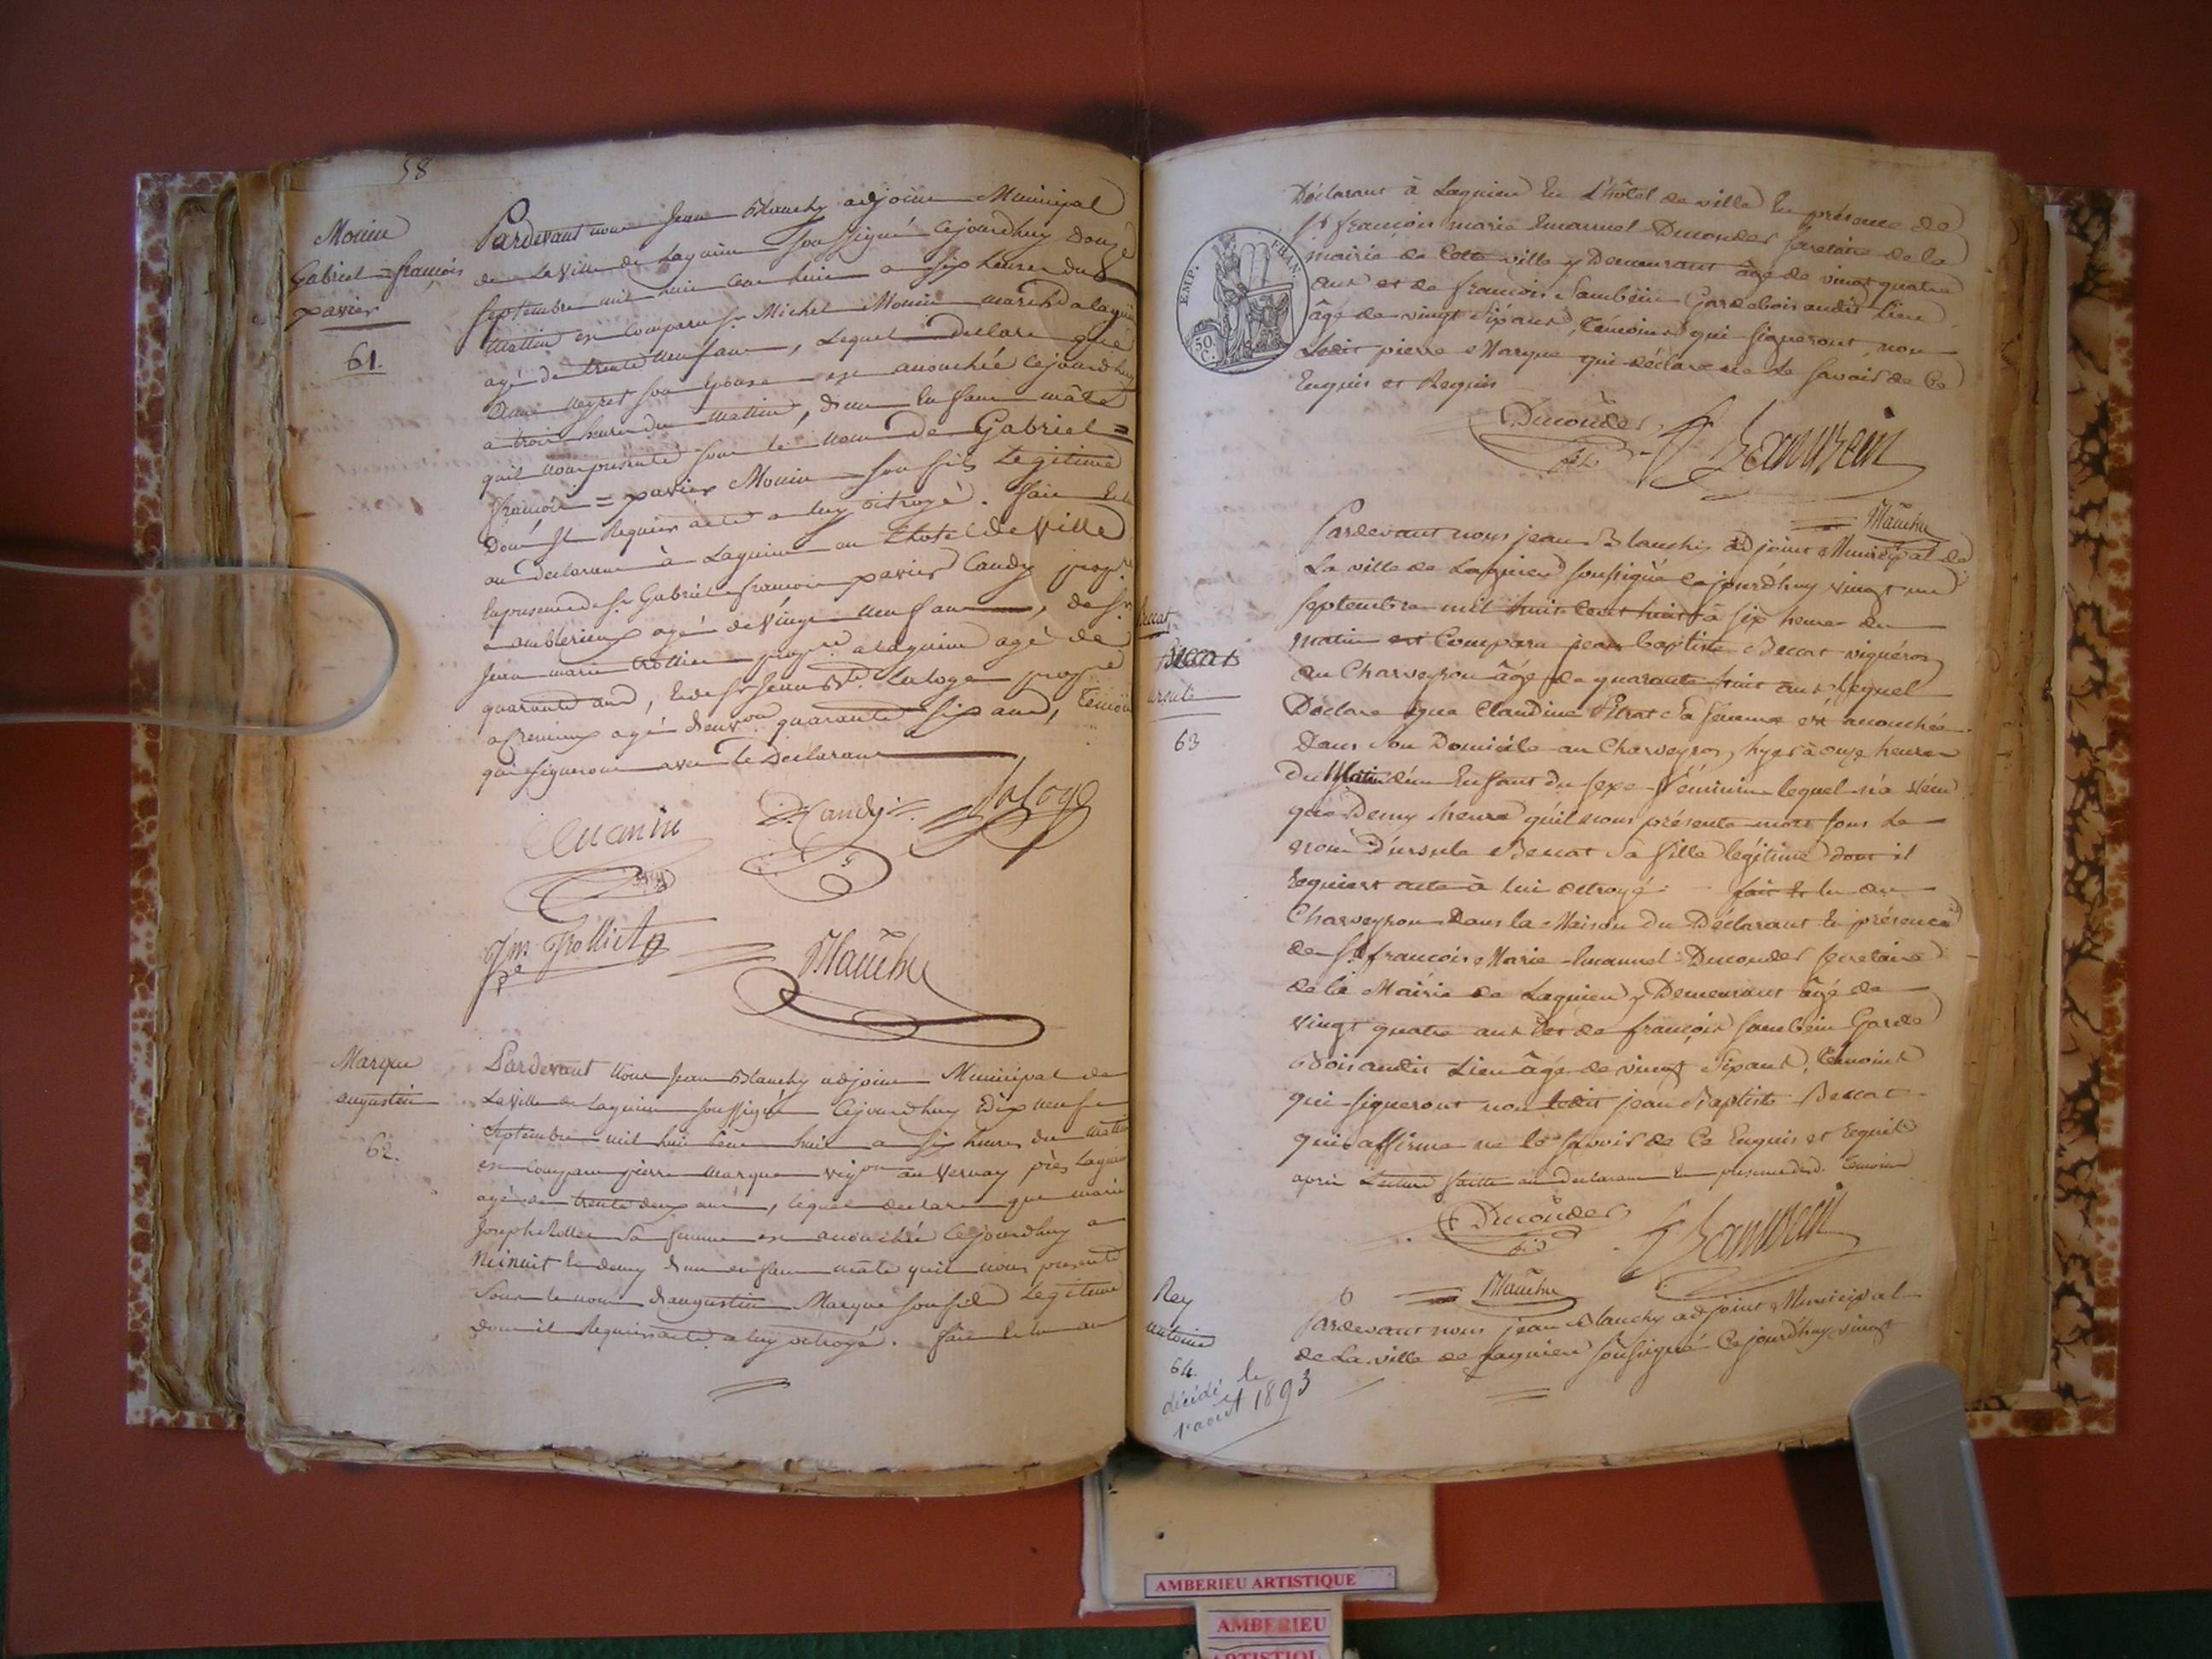 58
Monin
Gabriel=françois
xavier
61.
Pardevant nous Jean Blanchy adjoint Municipal
de La Ville de Lagnieu soussigné Cejourdhuy Douze
septembre mil huit cent huit a six heures du
mattin est comparu sr. Michel Monin march'd a lagnieu
agé de trente neuf ans, Lequel declare que
Neyret son Epouse est accouchée Cejourdhuy
a trois heures du mattin, d'un Enfant mâle
quil nous presente sous le nom de Gabriel=
François=xavier Monin son fils Légitime
Dont Il Requier acte a luy octroyé. fait et lu
au declarant à Lagnieu en L'hotel de Ville
En presence de sr. Gabriel francois xavier Candy prop.re
a amblerieux agé de Vingt neuf ans, de sr.
Jean marie trolliet prop.re a lagnieu agé de
quarante ans, Et de sr. Jean Bte. Laloge prop.re
a Cremieux agé d'env.on quarante six ans, Témoins
qui signeront avec le Declarant
Candy
Laloge
Jm. Trolliet
Blanchy
Marque
augustin
62.
Pardevant Nous Jean Blanchy adjoint Municipal de
La Ville de Lagnieu soussigné Cejourdhuy Dix neuf
septembre mil huit Cent huit a six heures du mattin
est comparu pierre marque vig.on au Vernay près Lagnieu
agé de trente deux ans, lequel declare que marie
Joseph sa femme est accouchée Cejourdhuy a
Minuit Et demy d'un enfant mâle quil nous presente
Sous le nom d'augustin Marque son fils Légitime
Dont il Requier acte a luy octroyé. fait et lu au
EMP. FRAN.
50 C.
Déclarant à Lagnieu En L'hôtel de ville En présence de
sr françois marie Emanuel Ducondes Secretaire de la
mairie de Cette ville y Demeurant âgé de vingt quatre
ans et de françois Sambein Garde bois audit Lieu
âgé de vingt Six ans, Témoins qui signeront, non
Ledit pierre Marque qui déclare ne Le savoir de Ce
Enquis et Requis
Ducondes
fils
Sambein
Blanchy
Beccat
Beccat
ursule
63
Pardevant nous jean Blanchy adjoint Municipal de
La ville de Lagnieu soussigné Cejourd'huy vingt un
septembre mil huit Cent huit à six heures du
matin est Comparu jean baptiste Beccat vigneron
au Charveyron âgé de quarante huit ans Lequel
Déclare que Claudine Sa femme est accouchée
Dans Son Domicile au Charveyron, hyer à onze heures
Du Matin d'un Enfant Du sexe féminin lequel n'a vécu
que Demy heure qu'il nous présente mort sous Le
nom D'ursule Beccat Sa fille légitime dont il
Requiert acte à lui octroyé. fait Et lu au
Charveyron Dans la Maison Du Déclarant En présence
de Sr. françois Marie Emanuel Ducondes secretaire
de la Mairie de Lagnieu y Demeurant âgé de
vingt quatre ans Et de françois Sambein Garde
Bois audit Lieu âgé de vingt Six ans, Témoins
qui signeront non ledit jean Baptiste Beccat
qui affirme ne le savoir de Ce Enquis et requis
aprés Lecture faitte au declarant En presence desd. temoins
Ducondes
fils
Sambein
Blanchy
Rey
antoine
64.
décédé le
1er août 1893
Pardevant nous jean Blanchy adjoint Municipal
de La ville de Lagnieu soussigné Cejourd'huy vingt
AMBERIEU ARTISTIQUE
AMBERIEU
ARTISTIQUE